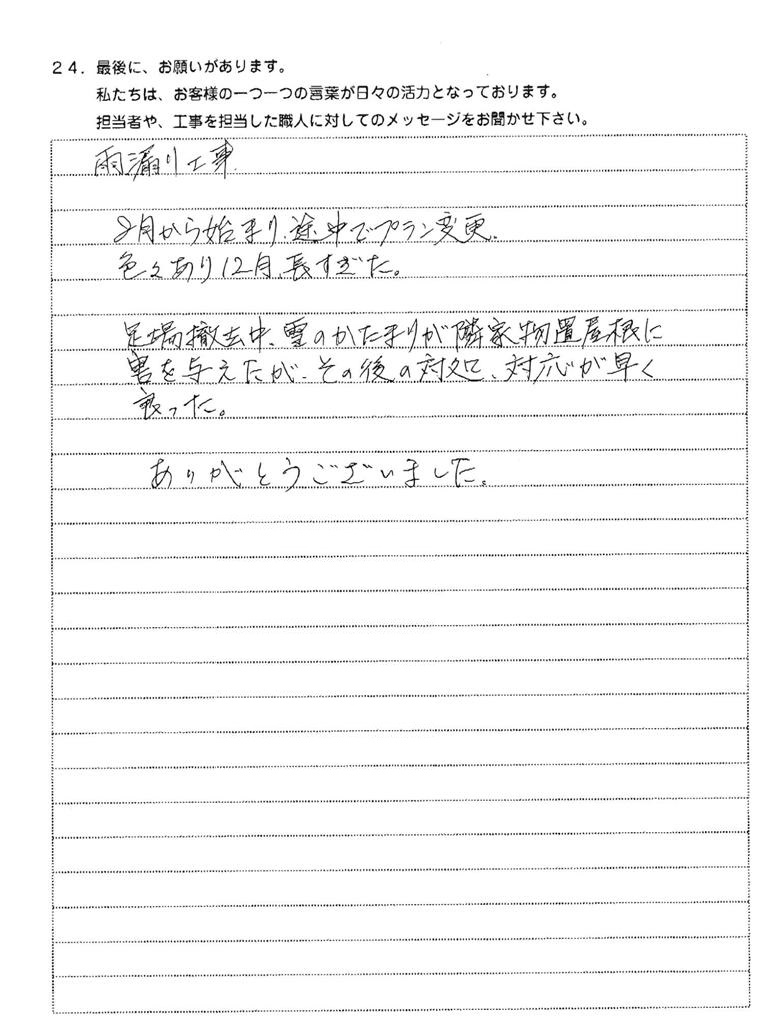 24．最後に、お願いがあります。
私たちは、お客様の一つ一つの言葉が日々の活力となっております。
担当者や、工事を担当した職人に対してのメッセージをお聞かせ下さい。
雨漏り工事
8月から始まり、途中でプラン変更、
色々あり12月、長すぎた。
足場撤去中、雪のかたまりが隣家物置屋根に
害を与えたが、その後の対処、対応が早く
良った。
ありがとうございました。